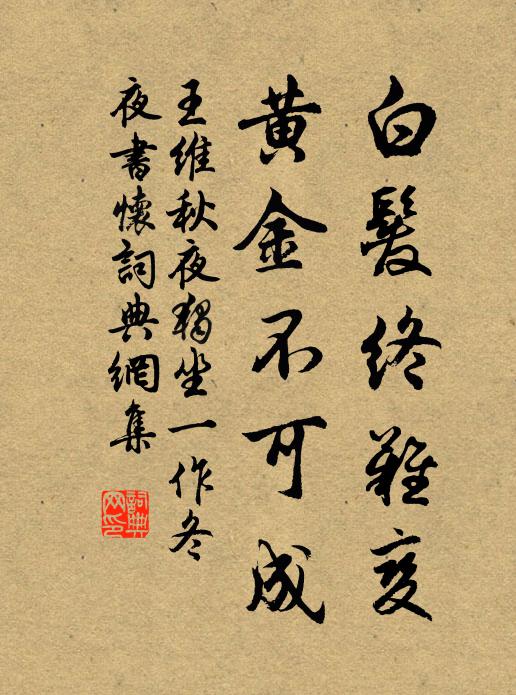 白髮終難変
黄金不可成
王維秋夜獨坐一作冬
夜書懷詞典網集
詞典
网印